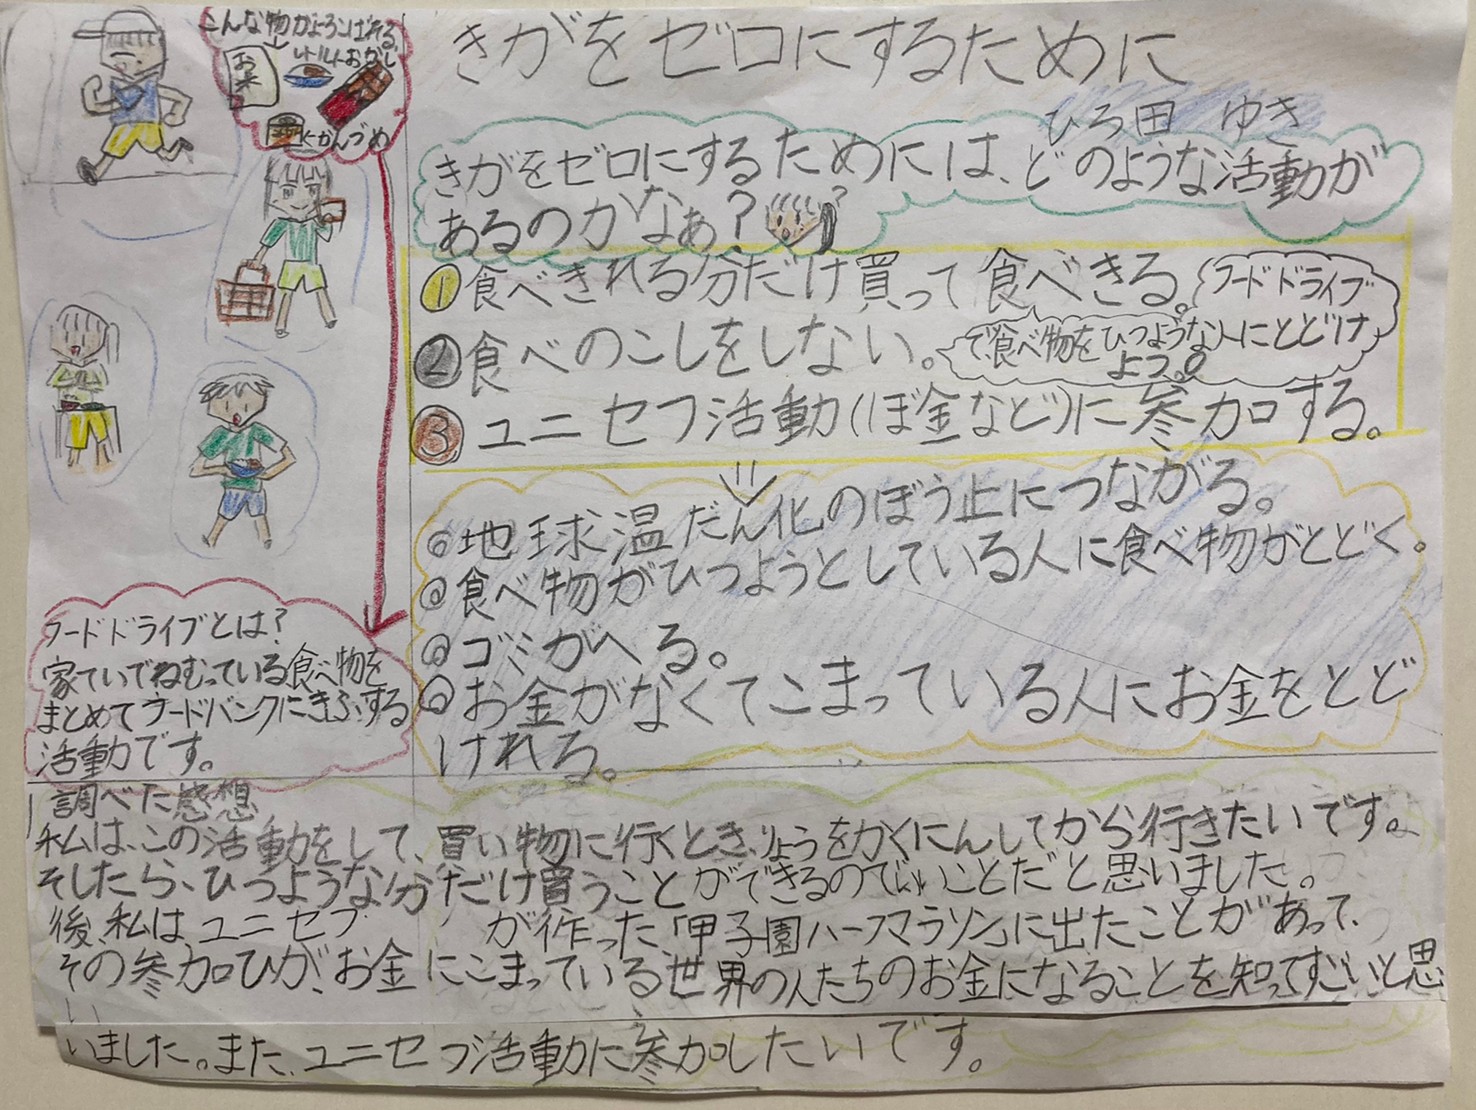 きがをゼロにするために
ひろ田 ゆき
こんな物がよろこばれる
お米
レトルト
おかし
←かんづめ
きがをゼロにするためには、どのような活動が
あるのかなぁ?
?
①食べきれる分だけ買って食べきる。
②食べのこしをしない。
フードドライブ
で、食べ物をひつような人にとどけ
よう。
③ユニセフ活動(ぼ金など)に参加する。
◎地球温だん化のぼう止につながる。
◎食べ物がひつようとしている人に食べ物がとどく。
◎ゴミがへる。
◎お金がなくてこまっている人にお金をとど
けれる。
フードドライブとは?
家ていでねむっている食べ物を
まとめてフードバンクにきふする
活動です。
調べた感想
私は、この活動をして、買い物に行くとき、りょうをかくにんしてから行きたいです。
そしたら、ひつような分だけ買うことができるのでいいことだと思いました。
後、私は、ユニセフが作った「甲子園ハーフマラソン」に出たことがあって、
その参加ひが、お金にこまっている世界の人たちのお金になることを知ってすごいと思
いました。また、ユニセフ活動に参加したいです。